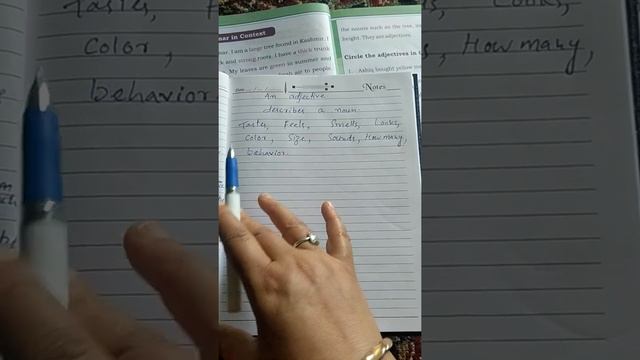 mar in Context
mar. I am a large tree found in Kashmir. I
k and strong roots. I have a thick trunk
My leaves are green in summer and
fresh air to people
the nouns such as the tree,
height. They are adjectives.
Circle the adjectives in
1. Ashiq bought yellow
Notes
An adjective
describes a noun.
Tastes, Feels, Smells, Looks,
Color, Size, Sounds, How many,
behavior.
Color,
How many,
behavior